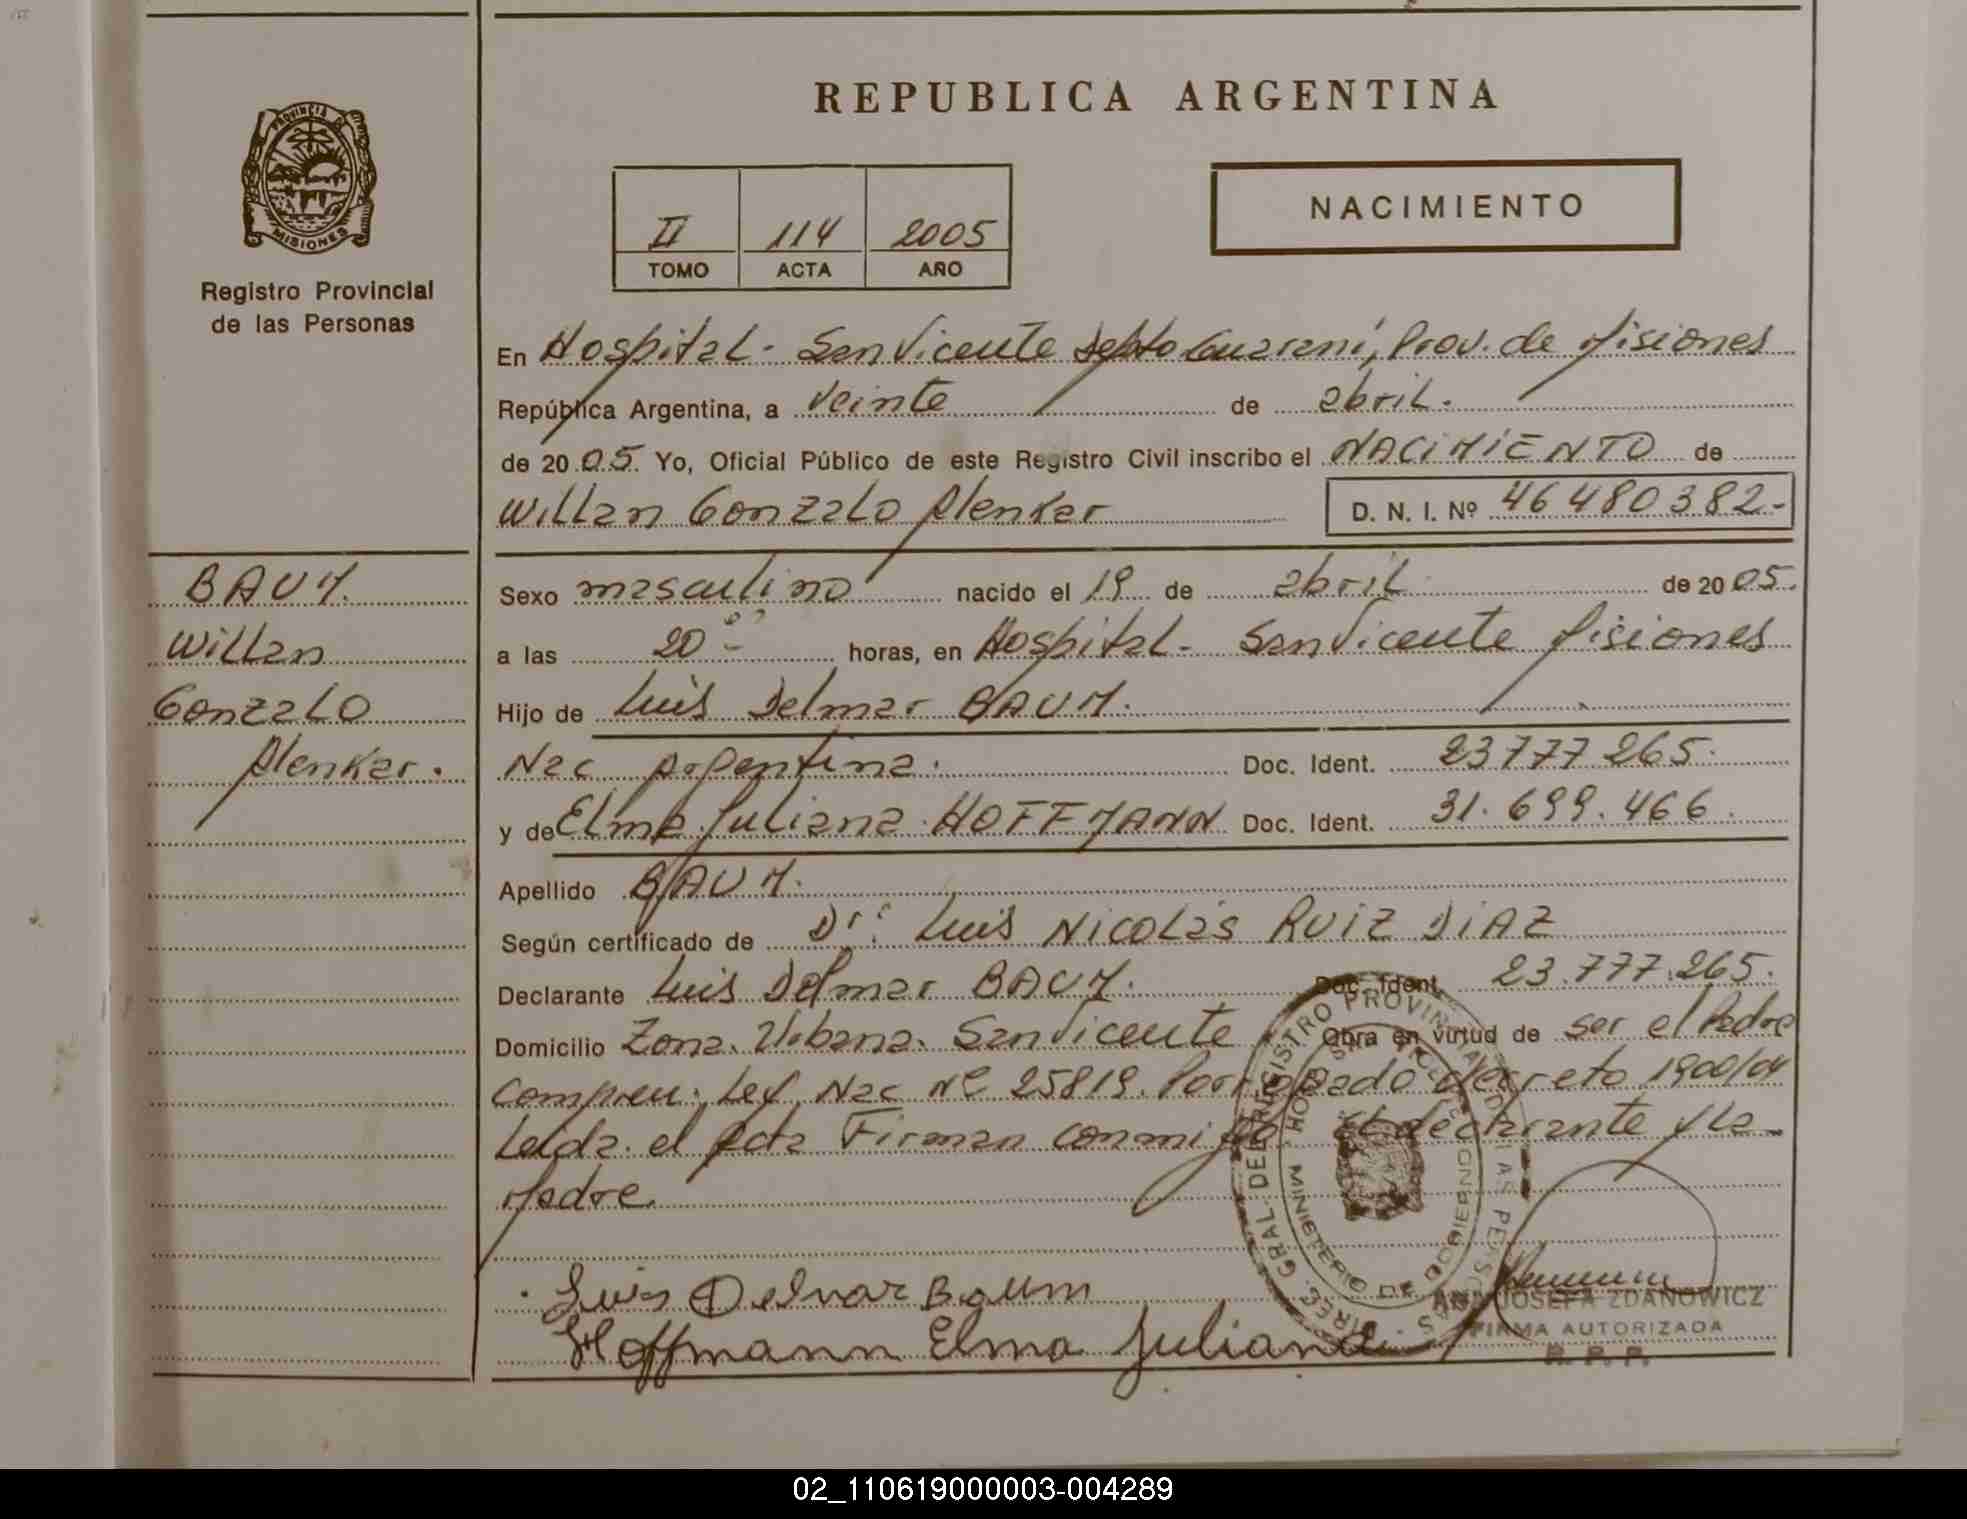 REPUBLICA ARGENTINA
PROVINCIA DE MISIONES
Registro Provincial
de las Personas
II 114 2005
TOMO ACTA AÑO
NACIMIENTO
En Hospital - San Vicente Depto Guaraní, Prov. de Misiones
República Argentina, a veinte de abril.
de 2005. Yo, Oficial Público de este Registro Civil inscribo el NACIMIENTO de
Willan Gonzalo Alenkar D. N. I. Nº 46480382-
BAUM.
Willan
Gonzalo
Alenkar.
Sexo masculino nacido el 19 de abril de 2005.
a las 20 horas, en Hospital - San Vicente Misiones
Hijo de Luis Delmar BAUM.
Nac Argentina. Doc. Ident. 23777265.
y de Elma Juliana HOFFMANN Doc. Ident. 31.699.466.
Apellido BAUM.
Según certificado de Dr. Luis Nicolás RUIZ DIAZ
Declarante Luis Delmar BAUM. Doc. Ident. 23.777.265.
Domicilio Zona Urbana San Vicente Obra en virtud de ser el Padre
Compren. Ley Nac Nº 25819. Prorrogado decreto 1900/04
Leída el Acta Firman conmigo el declarante y la
Madre.
Luis Delmar Baum
Hoffmann Elma Juliana
JOSEFA ZDANOWICZ
FIRMA AUTORIZADA
R. P. P.
DIREC. GRAL. DEL REGISTRO PROVINCIAL DE LAS PERSONAS
MINISTERIO DE GOBIERNO
02_110619000003-004289